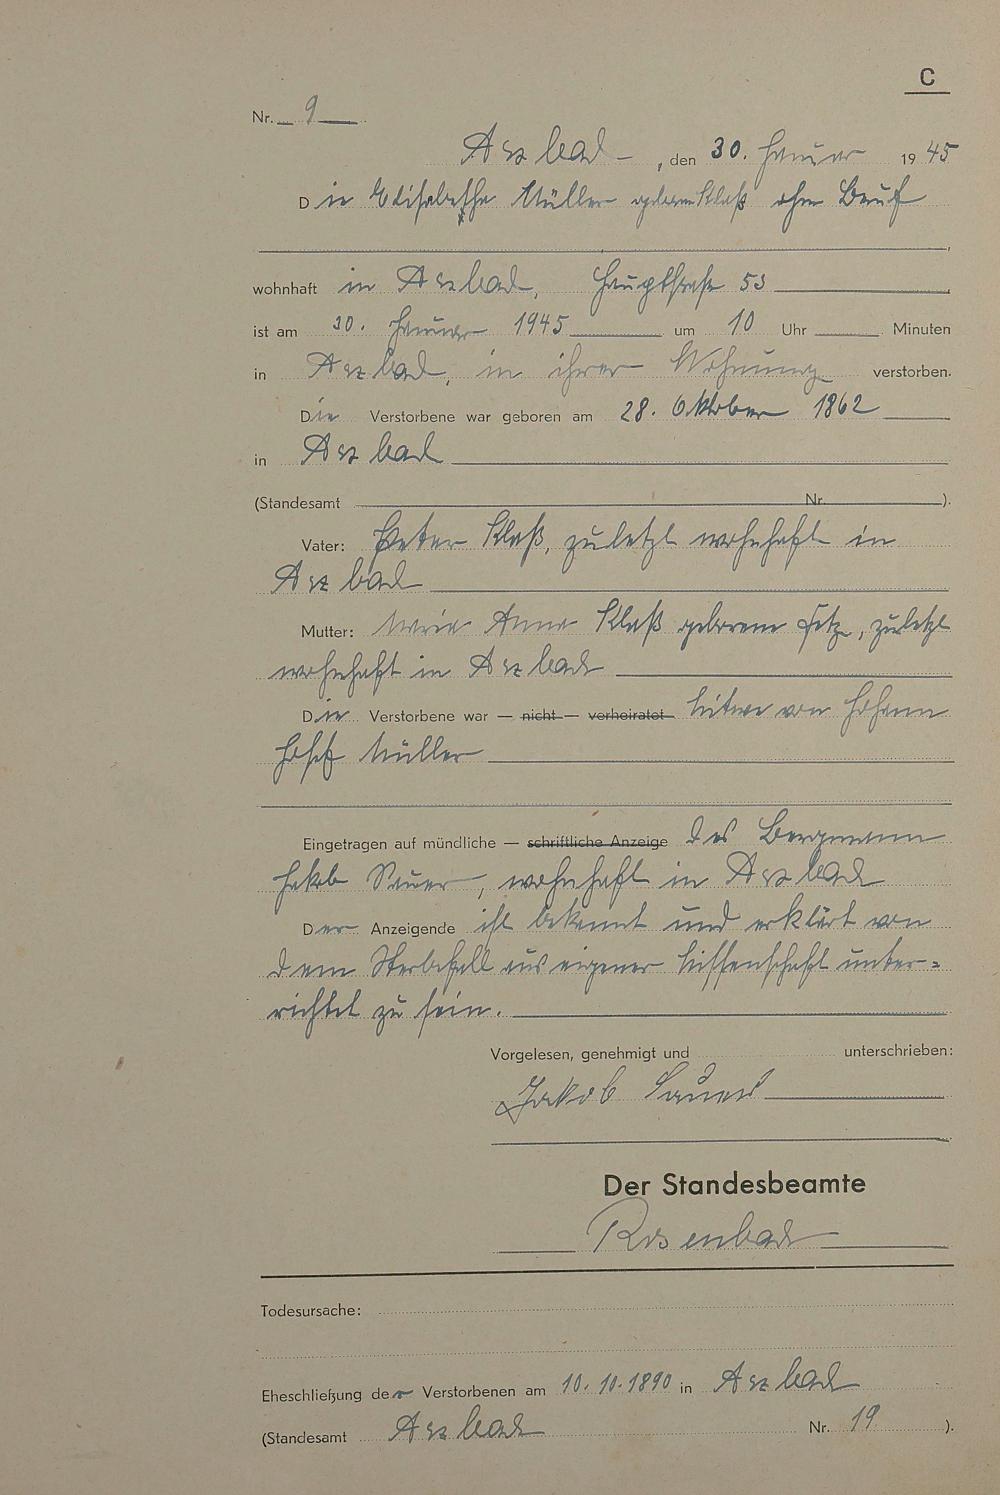 C
Nr. 9
Arzbach, den 30. Januar 1945
Die Elisabetha Müller geborene Klaß ohne Beruf
wohnhaft in Arzbach, Hauptstraße 53
ist am 30. Januar 1945 um 10 Uhr Minuten
in Arzbach, in ihrer Wohnung verstorben.
Die Verstorbene war geboren am 28. Oktober 1862
in Arzbach
(Standesamt Nr. ).
Vater: Peter Klaß, zuletzt wohnhaft in
Arzbach
Mutter: Maria Anna Klaß geborene, zuletzt
wohnhaft in Arzbach
Die Verstorbene war — nicht — verheiratet Witwe von Johann
Josef Müller
Eingetragen auf mündliche — schriftliche Anzeige des Bergmann
Jakob Sauer, wohnhaft in Arzbach
Der Anzeigende ist bekannt und erklärt von
dem Sterbefall aus eigener Wissenschaft unter=
richtet zu sein.
Vorgelesen, genehmigt und unterschrieben:
Jakob Sauer
Der Standesbeamte
Todesursache:
Eheschließung der Verstorbenen am 10.10.1890 in Arzbach
(Standesamt Arzbach Nr. 19 ).